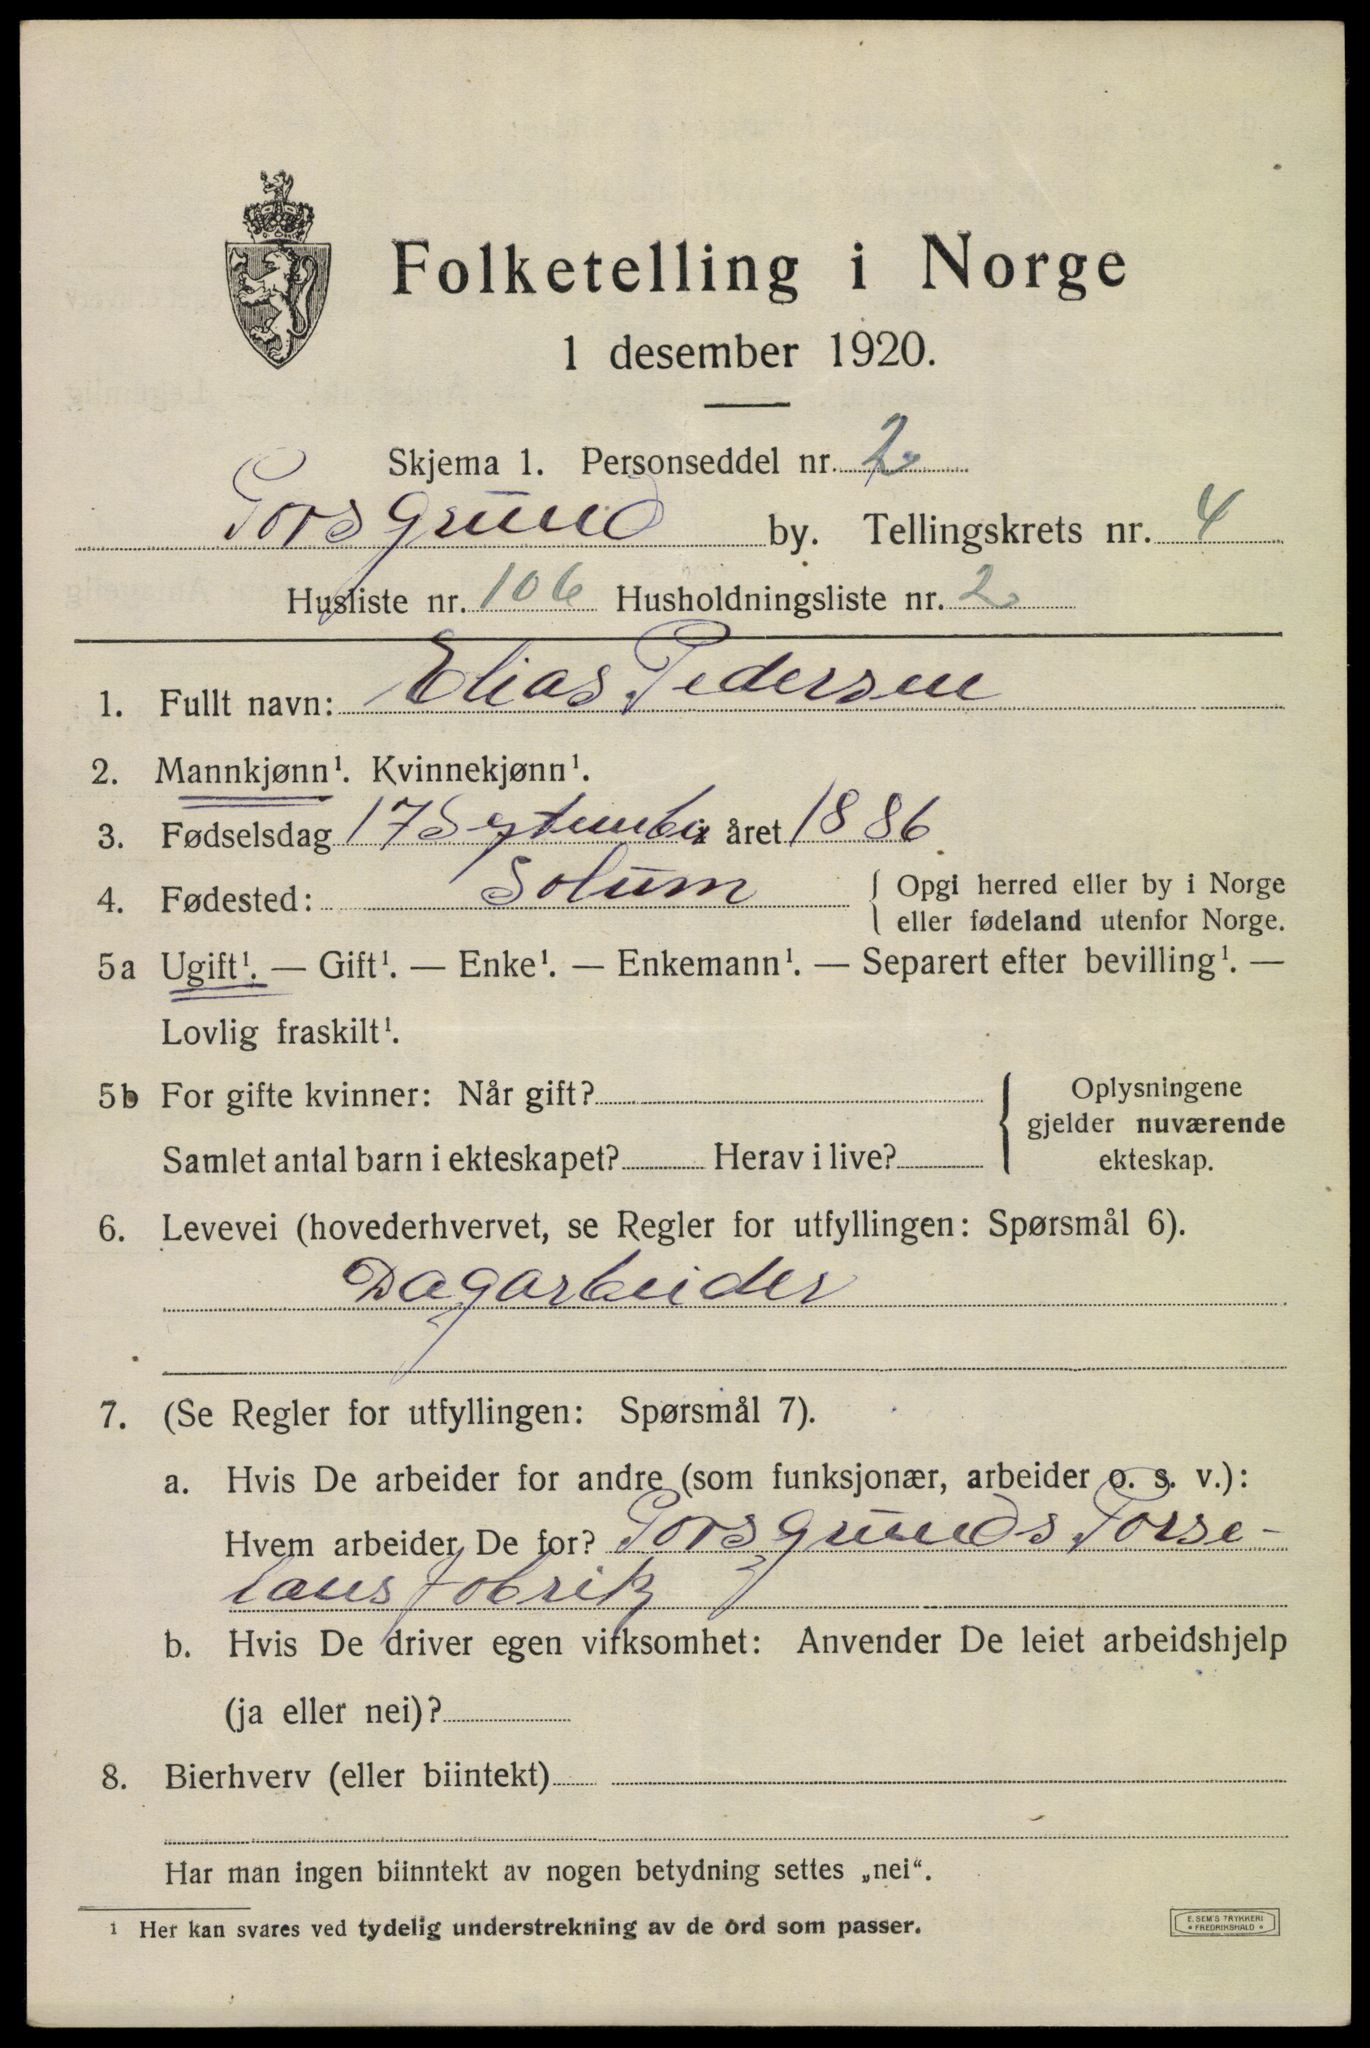 Folketelling i Norge
1 desember 1920.
Skjema 1. Personseddel nr. 2
Porsgrund by. Tellingskrets nr. 4
Husliste nr. 106 Husholdningsliste nr. 2
1. Fullt navn: Elias Pedersen
2. Mannkjønn¹. Kvinnekjønn¹.
3. Fødselsdag 17 September året 1886
4. Fødested: Solum { Opgi herred eller by i Norge
eller fødeland utenfor Norge.
5a Ugift¹. — Gift¹. — Enke¹. — Enkemann¹. — Separert efter bevilling¹. —
Lovlig fraskilt¹.
5b For gifte kvinner: Når gift? { Oplysningene
gjelder nuværende
Samlet antal barn i ekteskapet? Herav i live? ekteskap.
6. Levevei (hovederhvervet, se Regler for utfyllingen: Spørsmål 6).
Dagarbeider
7. (Se Regler for utfyllingen: Spørsmål 7).
a. Hvis De arbeider for andre (som funksjonær, arbeider o. s. v.):
Hvem arbeider De for? Porsgrunds Porse-
lansfabrik
b. Hvis De driver egen virksomhet: Anvender De leiet arbeidshjelp
(ja eller nei)?
8. Bierhverv (eller biintekt) —
Har man ingen biinntekt av nogen betydning settes „nei".
¹ Her kan svares ved tydelig understrekning av de ord som passer.
E. SEM'S TRYKKERI
* FREDRIKSHALD *